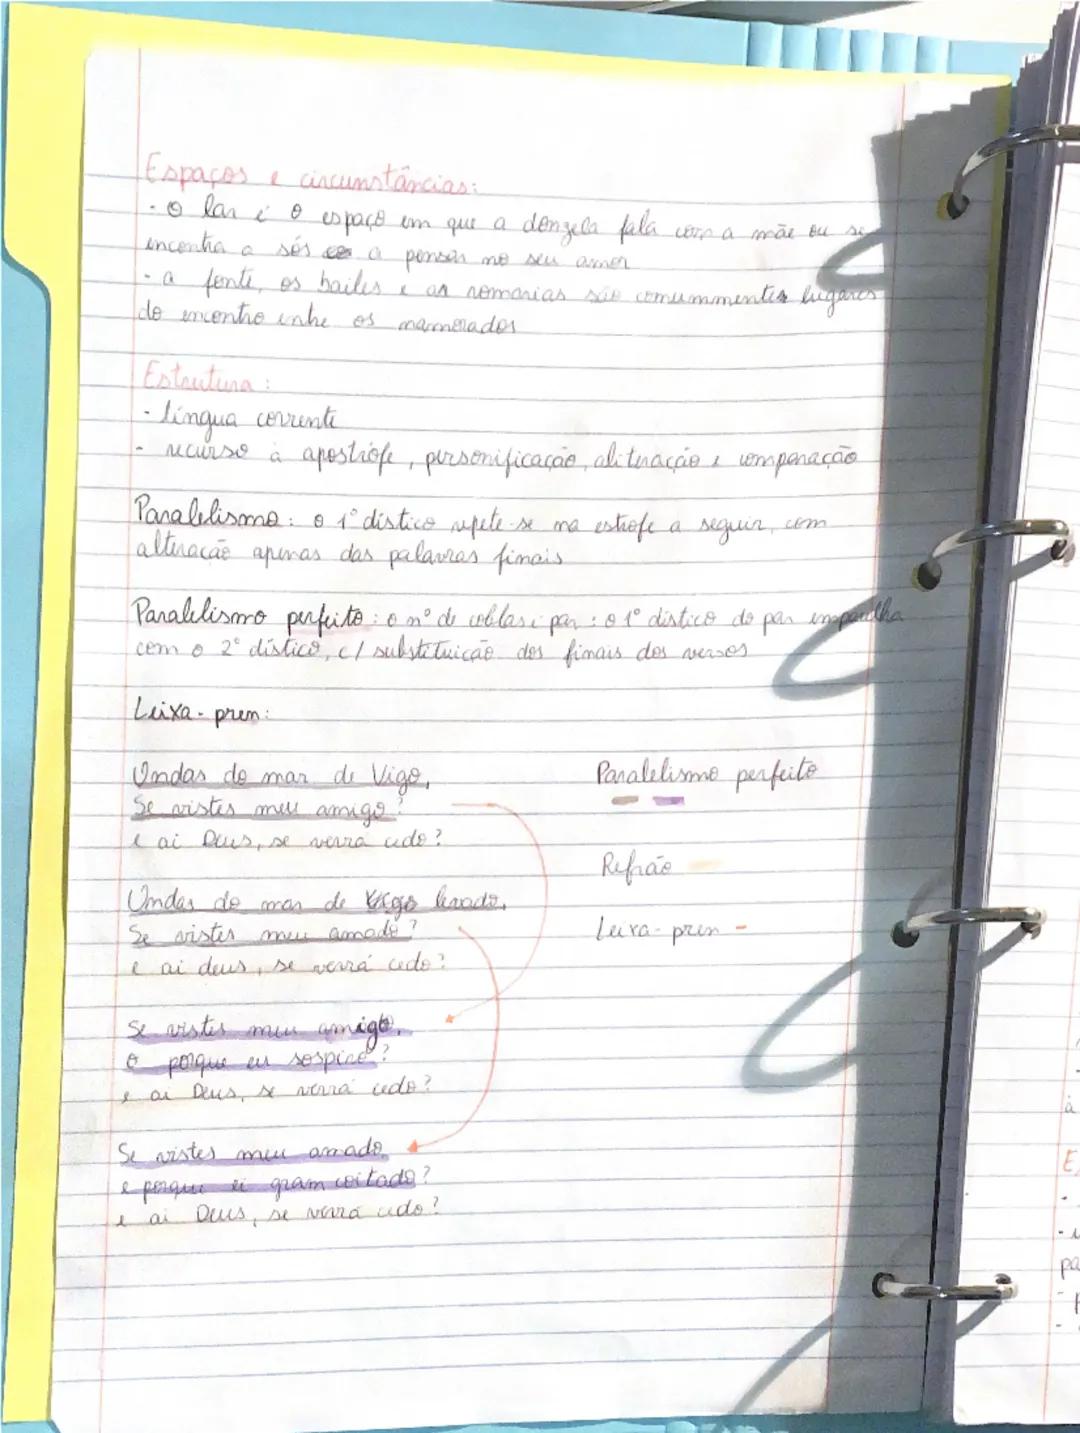 Espaços e circunstâncias:
- O lar é o espaço em que a donzela fala com a mãe ou se
encontra a sós a pensar no seu amor
- a fonte, os bailes e as romarias são comummentes lugares
de encontro entre os namorados
Estrutura:
- língua corrente
- recurso à apostrófe, personificação, aliteração e comparação
Paralelismo: o 1º dístico repete-se na estrofe a seguir, com
alteração apenas das palavras finais
Paralelismo perfeito: o nº de coblas é par: o 1º dístico do par emparelha
com o 2º dístico, c/ substituição dos finais dos versos
Leixa-pren:
Ondas do mar de Vigo,
Se vistes meu amigo?
e ai Deus, se verrá cedo?
Ondas do mar de levado,
Se vistes meu amado?
e ai deus, se verrá cedo?
Se vistes meu amigo,
o porque eu sospiro?
e ai Deus, se verrá cedo?
Se vistes meu amado,
e porque ei gram coitado?
e ai Deus, se verrá cedo?
Paralelismo perfeito
Refrão
Leixa-pren -